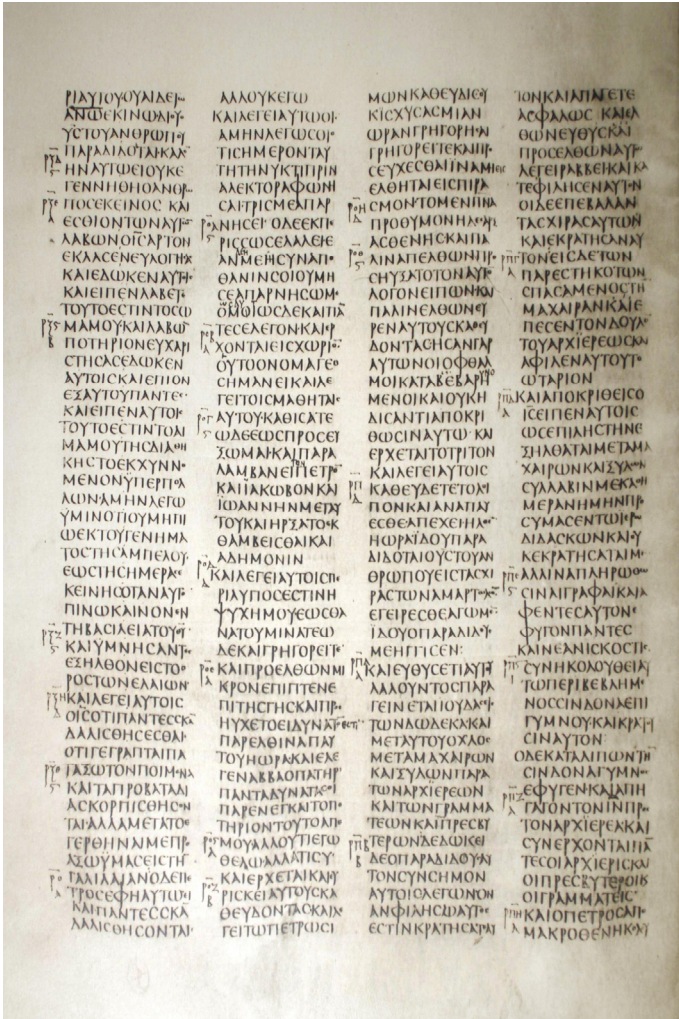 ΟΥΑΙΔΕ
ΑΝΘΡΩΠΟΥ
ΗΝΑΥΤΩΕΙΟΥΚΕ
ΓΕΝΝΗΘΗΟΑΝΟΡ
ΠΟϹΕΚΕΙΝΟϹ ΚΑΙ
ΕϹΘΙΟΝΤΩΝΑΥΤ
ΛΑΒΩΝΟΙϹΑΡΤΟΝ
ΕΚΛΑϹΕΝΕΥΛΟΓΗϹ
ΚΑΙΕΔΩΚΕΝΑΥΤ
ΚΑΙΕΙΠΕΝΛΑΒΕΤ
ΤΟΥΤΟΕϹΤΙΝΤΟϹΩ
ΜΑΜΟΥΚΑΙΛΑΒΩ
ΠΟΤΗΡΙΟΝΕΥΧΑΡΙ
ϹΤΗϹΑϹΕΔΩΚΕΝ
ΑΥΤΟΙϹΚΑΙΕΠΙΟΝ
ΕΞΑΥΤΟΥΠΑΝΤΕ
ΚΑΙΕΙΠΕΝΑΥΤΟΙ
ΤΟΥΤΟΕϹΤΙΝΤΟΑΙ
ΜΑΜΟΥΤΗϹΔΙΑΘΗ
ΚΗϹΤΟΕΚΧΥΝΝΟ
ΜΕΝΟΝΫΠΕΡΠΟΛ
ΛΩΝΑΜΗΝΛΕΓΩ
ΫΜΙΝΟΤΙΟΥΜΗΠΙ
ΩΕΚΤΟΥΓΕΝΗΜΑ
ΤΟϹΤΗϹΑΜΠΕΛΟΥ
ΕΩϹΤΗϹΗΜΕΡΑϹ
ΚΕΙΝΗϹΟΤΑΝΑΥΤ
ΠΙΝΩΚΑΙΝΟΝΕΝ
ΤΗΒΑϹΙΛΕΙΑΤΟΥ
ΚΑΙΫΜΝΗϹΑΝΤ
ΕΞΗΛΘΟΝΕΙϹΤΟ
ΡΟϹΤΩΝΕΛΑΙΩΝ
ΚΑΙΛΕΓΕΙΑΥΤΟΙϹ
ΟΙϹΟΤΙΠΑΝΤΕϹϹΚΑ
ΔΑΛΙϹΘΗϹΕϹΘΑΙ
ΟΤΙΓΕΓΡΑΠΤΑΙΠΑ
ΤΑΞΩΤΟΝΠΟΙΜΕΝΑ
ΚΑΙΤΑΠΡΟΒΑΤΑΔΙ
ΑϹΚΟΡΠΙϹΘΗϹΟΝ
ΤΑΙΑΛΛΑΜΕΤΑΤΟΕ
ΓΕΡΘΗΝΑΙΜΕΠΡΟ
ΑΞΩΫΜΑϹΕΙϹΤΗ
ΓΑΛΙΛΑΙΑΝΟΔΕΠΕ
ΤΡΟϹΕΦΗΑΥΤΩΙ
ΚΑΙΠΑΝΤΕϹϹΚΑ
ΔΑΛΙϹΘΗϹΟΝΤΑΙ
ΑΛΛΟΥΚΕΓΩ
ΚΑΙΛΕΓΕΙΑΥΤΩΟΙϹ
ΑΜΗΝΛΕΓΩϹΟΙ
ΤΙϹΗΜΕΡΟΝΤΑΥ
ΤΗΤΗΝΥΚΤΙΠΡΙΝ
ΑΛΕΚΤΟΡΑΦΩΝΗ
ϹΑΙΤΡΙϹΜΕΑΠΑΡ
ΝΗϹΕΙ ΟΔΕΕΚΠΕ
ΡΙϹϹΩϹΕΛΑΛΕΙΕ
ΑΝΜΕΗϹΥΝΑΠΟ
ΘΑΝΙΝϹΟΙΟΥΜΗ
ϹΕΑΠΑΡΝΗϹΩΜΑΙ
ΟΜΟΙΩϹΔΕΚΑΙΠΑ
ΤΕϹΕΛΕΓΟΝΚΑΙΕΡ
ΧΟΝΤΑΙΕΙϹΧΩΡΙΟ
ΟΥΤΟΟΝΟΜΑΓΕΘ
ϹΗΜΑΝΕΙΚΑΙΛΕ
ΓΕΙΤΟΙϹΜΑΘΗΤΑΙ
ΑΥΤΟΥΚΑΘΙϹΑΤΕ
ΩΔΕΕΩϹΠΡΟϹΕΥ
ΞΩΜΑΙΚΑΙΠΑΡΑ
ΛΑΜΒΑΝΕΙΠΕΤΡΟ
ΚΑΙΪΑΚΩΒΟΝΚΑΙ
ΪΩΑΝΝΗΝΜΕΤΑΥ
ΤΟΥΚΑΙΗΡΞΑΤΟΕΚ
ΘΑΜΒΕΙϹΘΑΙΚΑΙ
ΑΔΗΜΟΝΙΝ
ΚΑΙΛΕΓΕΙΑΥΤΟΙϹΠΕ
ΡΙΛΥΠΟϹΕϹΤΙΝΗ
ΨΥΧΗΜΟΥΕΩϹΘΑ
ΝΑΤΟΥΜΙΝΑΤΕΩ
ΔΕΚΑΙΓΡΗΓΟΡΕΙΤΕ
ΚΑΙΠΡΟΕΛΘΩΝΜΙ
ΚΡΟΝΕΠΙΠΤΕΝΕ
ΠΙΤΗϹΓΗϹΚΑΙΠΡ
ΗΥΧΕΤΟΕΙΔΥΝΑΤΟ
ΠΑΡΕΛΘΙΝΑΠΑΥ
ΤΟΥΗΩΡΑΚΑΙΕΛΕ
ΓΕΝΑΒΒΑΟΠΑΤΗΡ
ΠΑΝΤΑΔΥΝΑΤΑ
ΠΑΡΕΝΕΓΚΑΙΤΟΠΟ
ΤΗΡΙΟΝΤΟΥΤΟΑΠ
ΜΟΥΑΛΛΟΥΤΙΕΓΩ
ΘΕΛΩΑΛΛΑΤΙϹΥ
ΚΑΙΕΡΧΕΤΑΙΚΑΙΕΥ
ΡΙϹΚΕΙΑΥΤΟΥϹΚΑ
ΘΕΥΔΟΝΤΑϹΚΑΙΛΕ
ΓΕΙΤΩΠΕΤΡΩϹΙ
ΜΩΝΚΑΘΕΥΔΙϹΟΥ
ΚΙϹΧΥϹΑϹΜΙΑΝ
ΩΡΑΝΓΡΗΓΟΡΗϹΑΙ
ΓΡΗΓΟΡΕΙΤΕΚΑΙΠΡ
ϹΕΥΧΕϹΘΑΙΪΝΑΜΗ
ΕΛΘΗΤΑΙΕΙϹΠΙΡΑ
ϹΜΟΝΤΟΜΕΝΠΝΑ
ΠΡΟΘΥΜΟΝΗΔΕϹΑΡΞ
ΑϹΘΕΝΗϹΚΑΙΠΑ
ΛΙΝΑΠΕΛΘΩΝΠΡ
ϹΗΥΞΑΤΟΤΟΝΑΥΤ
ΛΟΓΟΝΕΙΠΩΝΚΑΙ
ΠΑΛΙΝΕΛΘΩΝΕΥ
ΡΕΝΑΥΤΟΥϹΚΑΘΕΥ
ΔΟΝΤΑϹΗϹΑΝΓΑΡ
ΑΥΤΩΝΟΙΟΦΘΑΛ
ΜΟΙΚΑΤΑΒΕΒΑΡΗ
ΜΕΝΟΙΚΑΙΟΥΚΗ
ΔΙϹΑΝΤΙΑΠΟΚΡΙ
ΘΩϹΙΝΑΥΤΩ ΚΑΙ
ΕΡΧΕΤΑΙΤΟΤΡΙΤΟΝ
ΚΑΙΛΕΓΕΙΑΥΤΟΙϹ
ΚΑΘΕΥΔΕΤΕΤΟΛΟΙ
ΠΟΝΚΑΙΑΝΑΠΑΥ
ΕϹΘΕΑΠΕΧΕΙΗΛΘΕ
ΗΩΡΑΪΔΟΥΠΑΡΑ
ΔΙΔΟΤΑΙΟΥϹΤΟΥΑΝ
ΘΡΩΠΟΥΕΙϹΤΑϹΧΙ
ΡΑϹΤΩΝΑΜΑΡΤΩΛ
ΕΓΕΙΡΕϹΘΕΑΓΩΜΕ
ΪΔΟΥΟΠΑΡΑΔΙΔΟΥ
ΜΕΗΓΓΙϹΕΝ:
ΚΑΙΕΥΘΥϹΕΤΙΑΥΤΟΥ
ΛΑΛΟΥΝΤΟϹΠΑΡΑ
ΓΕΙΝΕΤΑΙΪΟΥΔΑϹΕΙϹ
ΤΩΝΔΩΔΕΚΑΚΑΙ
ΜΕΤΑΥΤΟΥΟΧΛΟϹ
ΜΕΤΑΜΑΧΑΙΡΩΝ
ΚΑΙΞΥΛΩΝΠΑΡΑ
ΤΩΝΑΡΧΙΕΡΕΩΝ
ΚΑΙΤΩΝΓΡΑΜΜΑ
ΤΕΩΝΚΑΙΠΡΕϹΒΥ
ΤΕΡΩΝΔΕΔΩΚΕΙ
ΔΕΟΠΑΡΑΔΙΔΟΥΑΥ
ΤΟΝϹΥΝϹΗΜΟΝ
ΑΥΤΟΙϹΛΕΓΩΝΟΝ
ΑΝΦΙΛΗϹΩΑΥΤΟϹ
ΕϹΤΙΝΚΡΑΤΗϹΑΤΑΙ
ΤΟΝΚΑΙΑΠΑΓΕΤΕ
ΑϹΦΑΛΩϹ ΚΑΙΕΛ
ΘΩΝΕΥΘΥϹΚΑΙ
ΠΡΟϹΕΛΘΩΝΑΥΤ
ΛΕΓΕΙΡΑΒΒΕΙΚΑΙΚΑ
ΤΕΦΙΛΗϹΕΝΑΥΤΟΝ
ΟΙΔΕΕΠΕΒΑΛΑΝ
ΤΑϹΧΙΡΑϹΑΥΤΩΝ
ΚΑΙΕΚΡΑΤΗϹΑΝΑΥ
ΤΟΝΕΙϹΔΕΤΩΝ
ΠΑΡΕϹΤΗΚΟΤΩΝ
ϹΠΑϹΑΜΕΝΟϹΤΗ
ΜΑΧΑΙΡΑΝΚΑΙΕ
ΠΕϹΕΝΤΟΝΔΟΥΛΟ
ΤΟΥΑΡΧΙΕΡΕΩϹΚΑΙ
ΑΦΙΛΕΝΑΥΤΟΥΤ
ΩΤΑΡΙΟΝ
ΚΑΙΑΠΟΚΡΙΘΕΙϹΟ
ΙϹΕΙΠΕΝΑΥΤΟΙϹ
ΩϹΕΠΙΛΗϹΤΗΝΕ
ΞΗΛΘΑΤΑΙΜΕΤΑΜΑ
ΧΑΙΡΩΝΚΑΙΞΥΛΩΝ
ϹΥΛΛΑΒΙΝΜΕΚΑΘΗ
ΜΕΡΑΝΗΜΗΝΠΡ
ΫΜΑϹΕΝΤΩΙΕΡΩ
ΔΙΔΑϹΚΩΝΚΑΙΟΥ
ΚΕΚΡΑΤΗϹΑΤΑΙΜΕ
ΑΛΛΙΝΑΠΛΗΡΩΘΩ
ϹΙΝΑΙΓΡΑΦΑΙΚΑΙΑ
ΦΕΝΤΕϹΑΥΤΟΝ
ΕΦΥΓΟΝΠΑΝΤΕϹ
ΚΑΙΝΕΑΝΙϹΚΟϹΤΙϹ
ϹΥΝΗΚΟΛΟΥΘΕΙΑΥ
ΤΩΠΕΡΙΒΕΒΛΗΜΕ
ΝΟϹϹΙΝΔΟΝΑΕΠΙ
ΓΥΜΝΟΥΚΑΙΚΡΑΤΟΥ
ϹΙΝΑΥΤΟΝ
ΟΔΕΚΑΤΑΛΙΠΩΝΤΗ
ϹΙΝΔΟΝΑΓΥΜΝΟ
ΕΦΥΓΕΝΚΑΙΑΠΗ
ΓΑΓΟΝΤΟΝΙΝΠΡΟ
ΤΟΝΑΡΧΙΕΡΕΑΚΑΙ
ϹΥΝΕΡΧΟΝΤΑΙΠΑ
ΤΕϹΟΙΑΡΧΙΕΡΙϹΚΑΙ
ΟΙΠΡΕϹΒΥΤΕΡΟΙΚ
ΟΙΓΡΑΜΜΑΤΕΙϹ
ΚΑΙΟΠΕΤΡΟϹΑΠΟ
ΜΑΚΡΟΘΕΝΗΚΟΛΟΥ